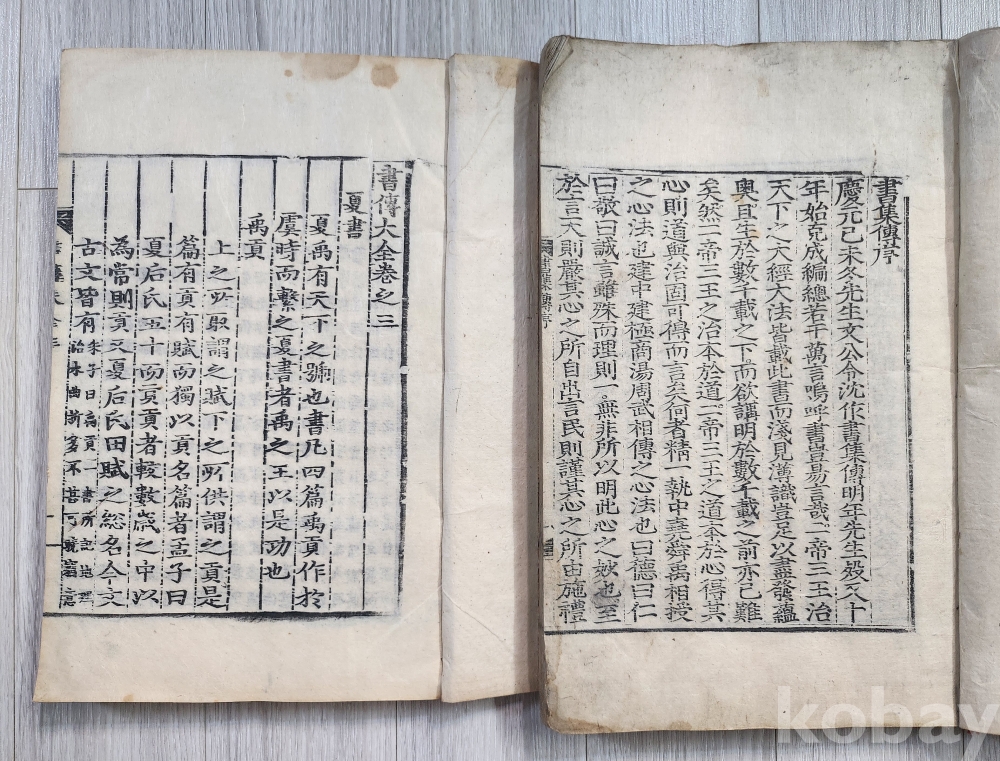 書集傳序
慶元己未冬先生文公令沈作書集傳明年先生歿又十
年始克成編總若干萬言嗚呼書豈易言哉二帝三王治
天下之大經大法皆載此書而淺見薄識豈足以盡發蘊
奧且生於數千載之下而欲講明於數千載之前亦已難
矣然二帝三王之治本於道二帝三王之道本於心得其
心則道與治固可得而言矣何者精一執中堯舜禹相授
之心法也建中建極商湯周武相傳之心法也曰德曰仁
曰敬曰誠言雖殊而理則一無非所以明此心之妙也至
於言天則嚴其心之所自出言民則謹其心之所由施禮
書集傳序
書傳大全卷之三
夏書
夏禹有天下之號也書凡四篇禹貢作於
虞時而繫之夏書者禹之王以是功也
禹貢
上之所取謂之賦下之所供謂之貢是
篇有貢有賦而獨以貢名篇者孟子曰
夏后氏五十而貢貢者較數歲之中以
為常則貢又夏后氏田賦之總名今文
古文皆有
朱子曰禹貢一書所記地理
治水曲折多不甚可曉竊意
kobay